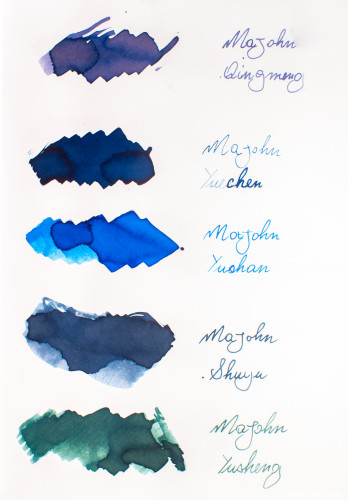 Majohn
.Qingmeng
Majohn
Yuechen
Majohn
Yuohan
Majohn
.Shuyu
Majohn
Yusheng